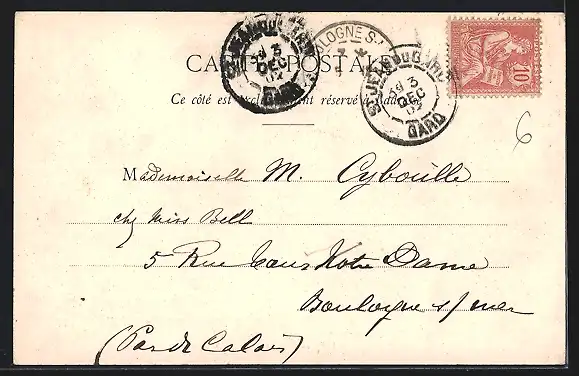 CARTE POSTALE
Ce côté est exclusivement réservé à l'adresse
ST JEAN DU GARD
3
DEC
02
GARD
BOULOGNE S-
ST JEAN DU GARD
3
DEC
02
GARD
10
6
Mademoiselle M. Cyboulle
chez Miss Bell
5 Rue Cours Notre Dame
Boulogne s/mer
(Pas de Calais)